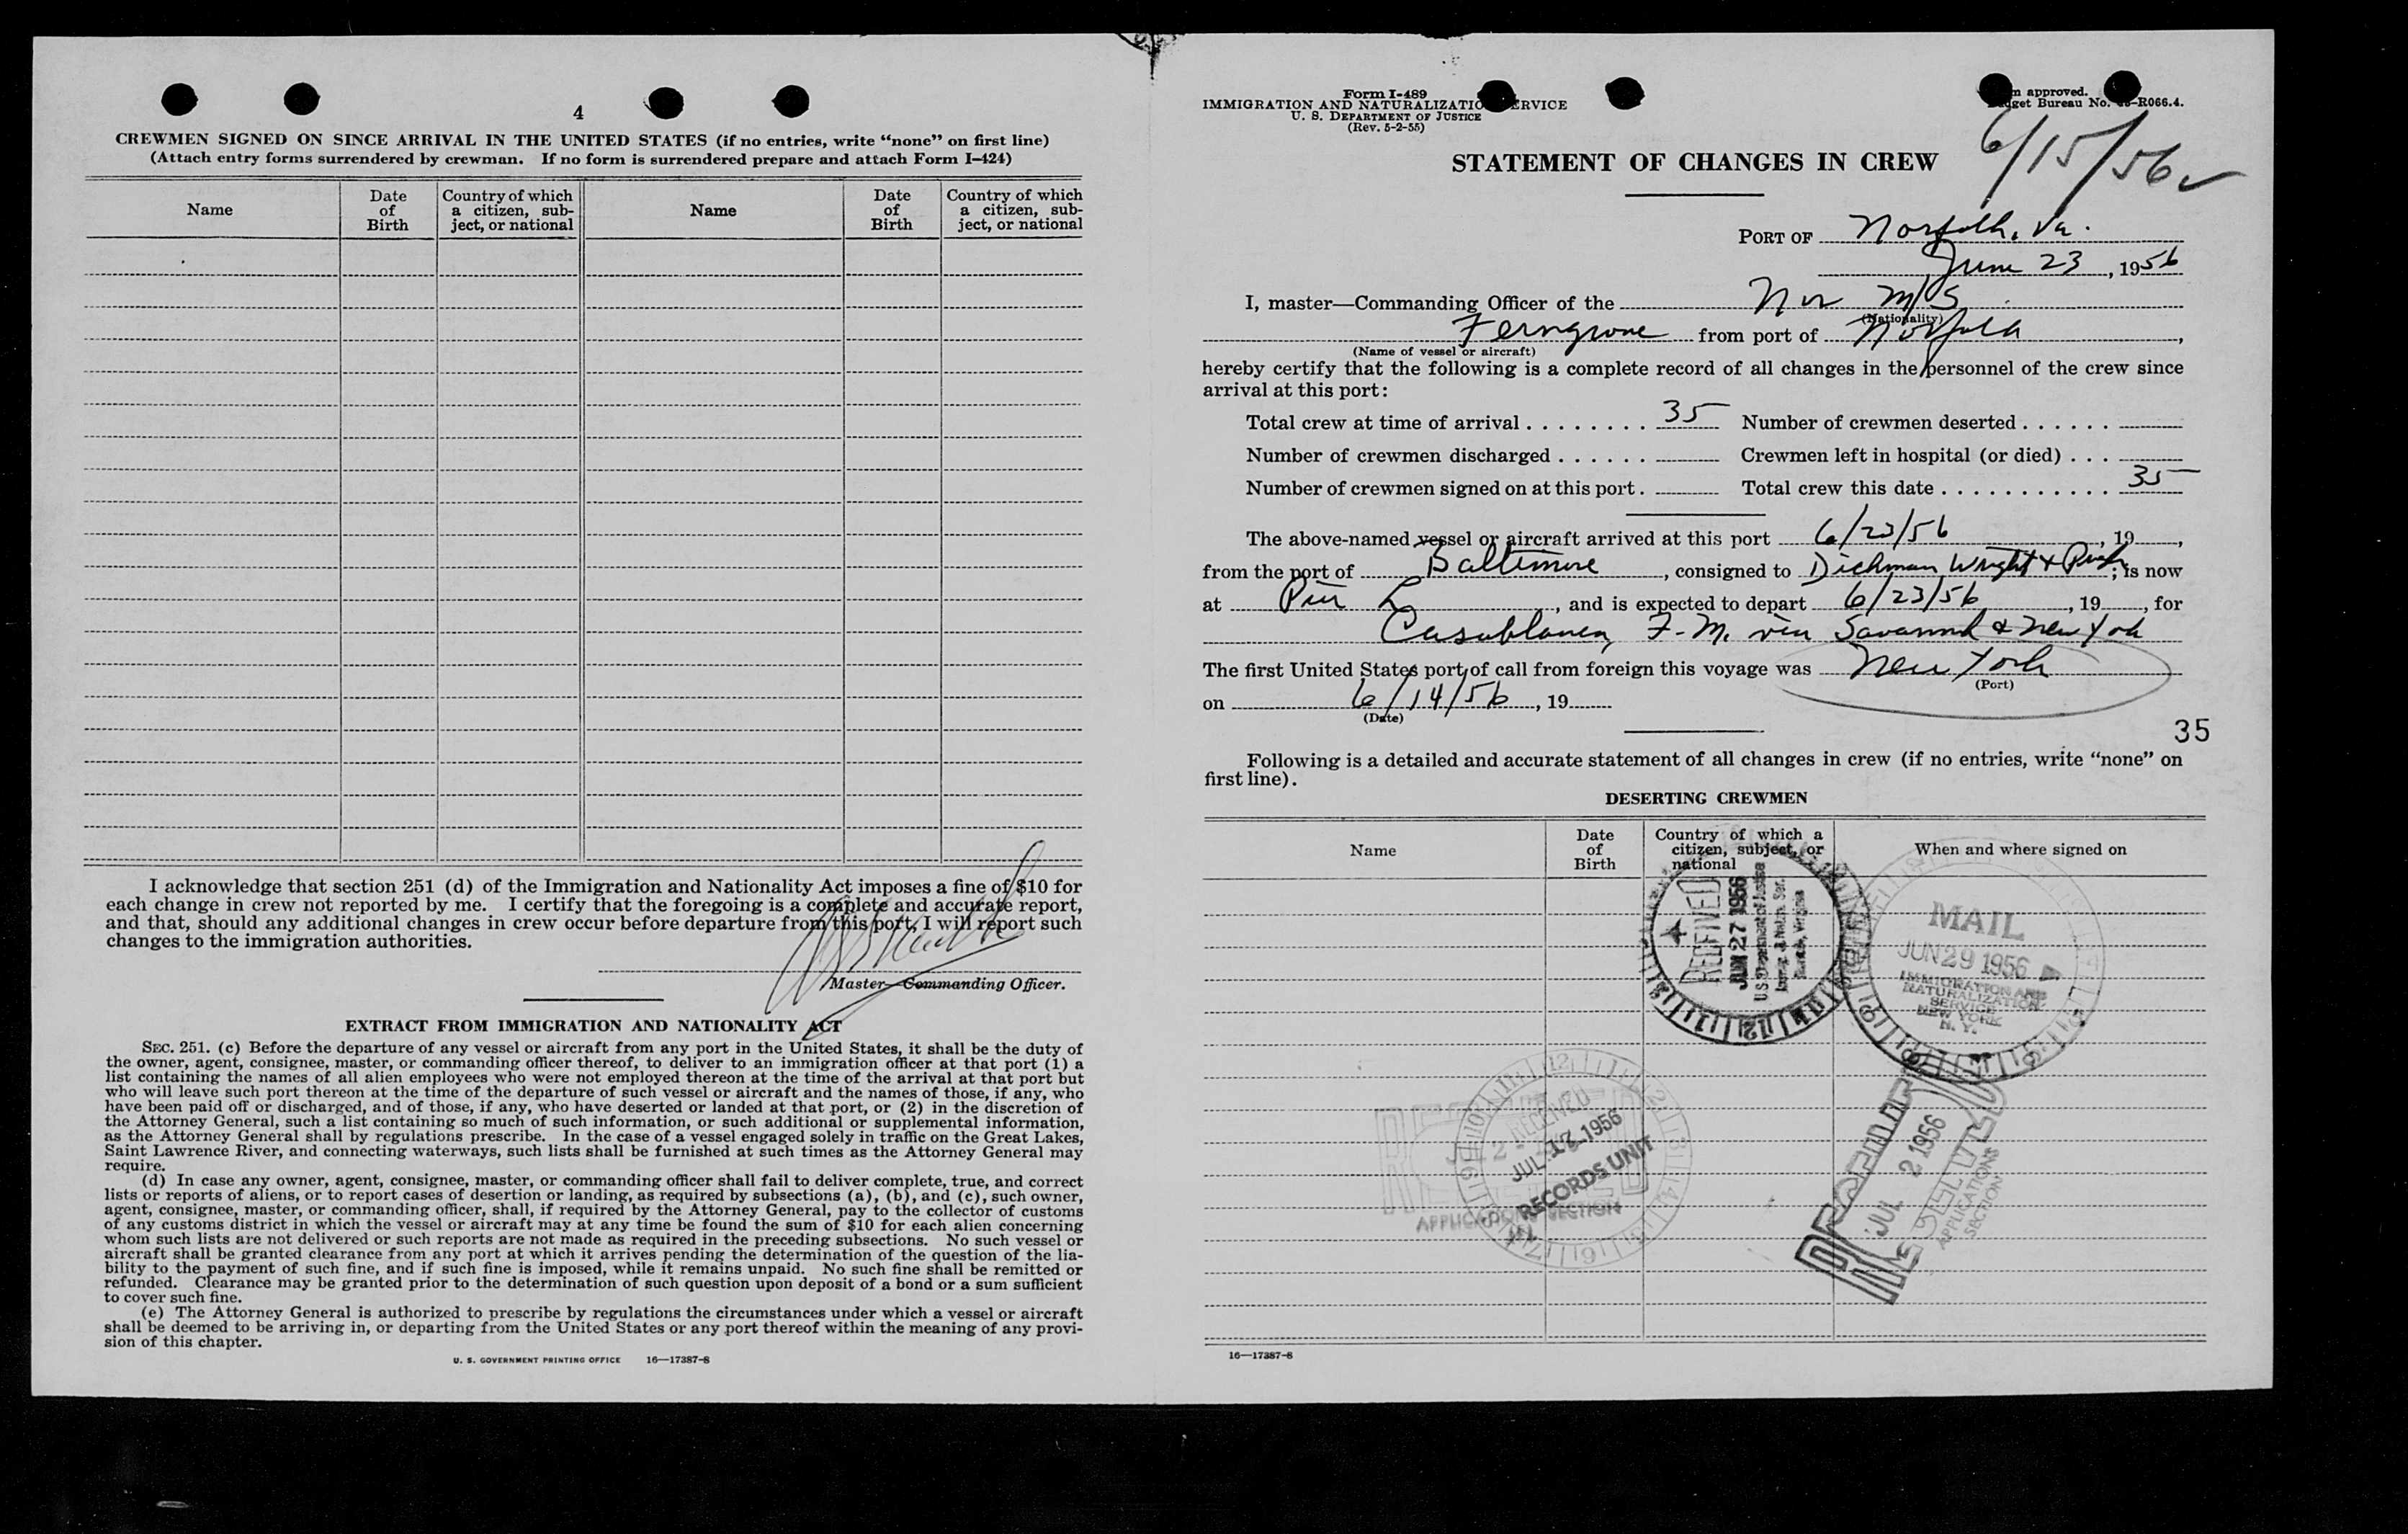 4
CREWMEN SIGNED ON SINCE ARRIVAL IN THE UNITED STATES (if no entries, write “none” on first line)
(Attach entry forms surrendered by crewman. If no form is surrendered prepare and attach Form I-424)
Name
Date of Birth
Country of which a citizen, sub-
ject, or national
Name
Date of Birth
Country of which a citizen, sub-
ject, or national
I acknowledge that section 251 (d) of the Immigration and Nationality Act imposes a fine of $10 for
each change in crew not reported by me. I certify that the foregoing is a complete and accurate report,
and that, should any additional changes in crew occur before departure from this port, I will report such
changes to the immigration authorities.
Master—Commanding Officer.
EXTRACT FROM IMMIGRATION AND NATIONALITY ACT
SEC. 251. (c) Before the departure of any vessel or aircraft from any port in the United States, it shall be the duty of
the owner, agent, consignee, master, or commanding officer thereof, to deliver to an immigration officer at that port (1) a
list containing the names of all alien employees who were not employed thereon at the time of the arrival at that port but
who will leave such port thereon at the time of the departure of such vessel or aircraft and the names of those, if any, who
have been paid off or discharged, and of those, if any, who have deserted or landed at that port, or (2) in the discretion of
the Attorney General, such a list containing so much of such information, or such additional or supplemental information,
as the Attorney General shall by regulations prescribe. In the case of a vessel engaged solely in traffic on the Great Lakes,
Saint Lawrence River, and connecting waterways, such lists shall be furnished at such times as the Attorney General may
require.
(d) In case any owner, agent, consignee, master, or commanding officer shall fail to deliver complete, true, and correct
lists or reports of aliens, or to report cases of desertion or landing, as required by subsections (a), (b), and (c), such owner,
agent, consignee, master, or commanding officer, shall, if required by the Attorney General, pay to the collector of customs
of any customs district in which the vessel or aircraft may at any time be found the sum of $10 for each alien concerning
whom such lists are not delivered or such reports are not made as required in the preceding subsections. No such vessel or
aircraft shall be granted clearance from any port at which it arrives pending the determination of the question of the lia-
bility to the payment of such fine, and if such fine is imposed, while it remains unpaid. No such fine shall be remitted or
refunded. Clearance may be granted prior to the determination of such question upon deposit of a bond or a sum sufficient
to cover such fine.
(e) The Attorney General is authorized to prescribe by regulations the circumstances under which a vessel or aircraft
shall be deemed to be arriving in, or departing from the United States or any port thereof within the meaning of any provi-
sion of this chapter.
U. S. GOVERNMENT PRINTING OFFICE 16—17387-8
Form I-489
IMMIGRATION AND NATURALIZATION SERVICE
U. S. DEPARTMENT OF JUSTICE
(Rev. 5-2-55)
approved.
Budget Bureau No. -R066.4.
6/15/56
STATEMENT OF CHANGES IN CREW
PORT OF Norfolk, Va.
June 23, 1956
I, master—Commanding Officer of the Nor M/S
(Nationality)
Ferngrove from port of Norfolk,
(Name of vessel or aircraft)
hereby certify that the following is a complete record of all changes in the personnel of the crew since
arrival at this port:
Total crew at time of arrival . . . . . . . . 35 Number of crewmen deserted . . . . . .
Number of crewmen discharged . . . . . . Crewmen left in hospital (or died) . . .
Number of crewmen signed on at this port . Total crew this date . . . . . . . . . . . 35
The above-named vessel or aircraft arrived at this port 6/23/56, 19 ,
from the port of Baltimore, consigned to Dichman Wright & Pugh; is now
at Pier L, and is expected to depart 6/23/56, 19 , for
Casablanca, F.M. via Savannah & New York
The first United States port of call from foreign this voyage was New York
(Port)
on 6/14/56, 19
(Date)
35
Following is a detailed and accurate statement of all changes in crew (if no entries, write “none” on
first line).
DESERTING CREWMEN
Name
Date of Birth
Country of which a citizen, subject, or national
When and where signed on
RECEIVED
JUN 27 1956
U.S. Department of Justice
Immig. & Natzn. Ser.
Norfolk, Virginia
MAIL
JUN 29 1956
IMMIGRATION AND
NATURALIZATION
SERVICE
NEW YORK
N. Y.
RECEIVED
JUL 1956
RECORDS UNIT
APPLICATIONS SECTION
JUL 2 1956
APPLICATIONS
SECTION
16—17387-8